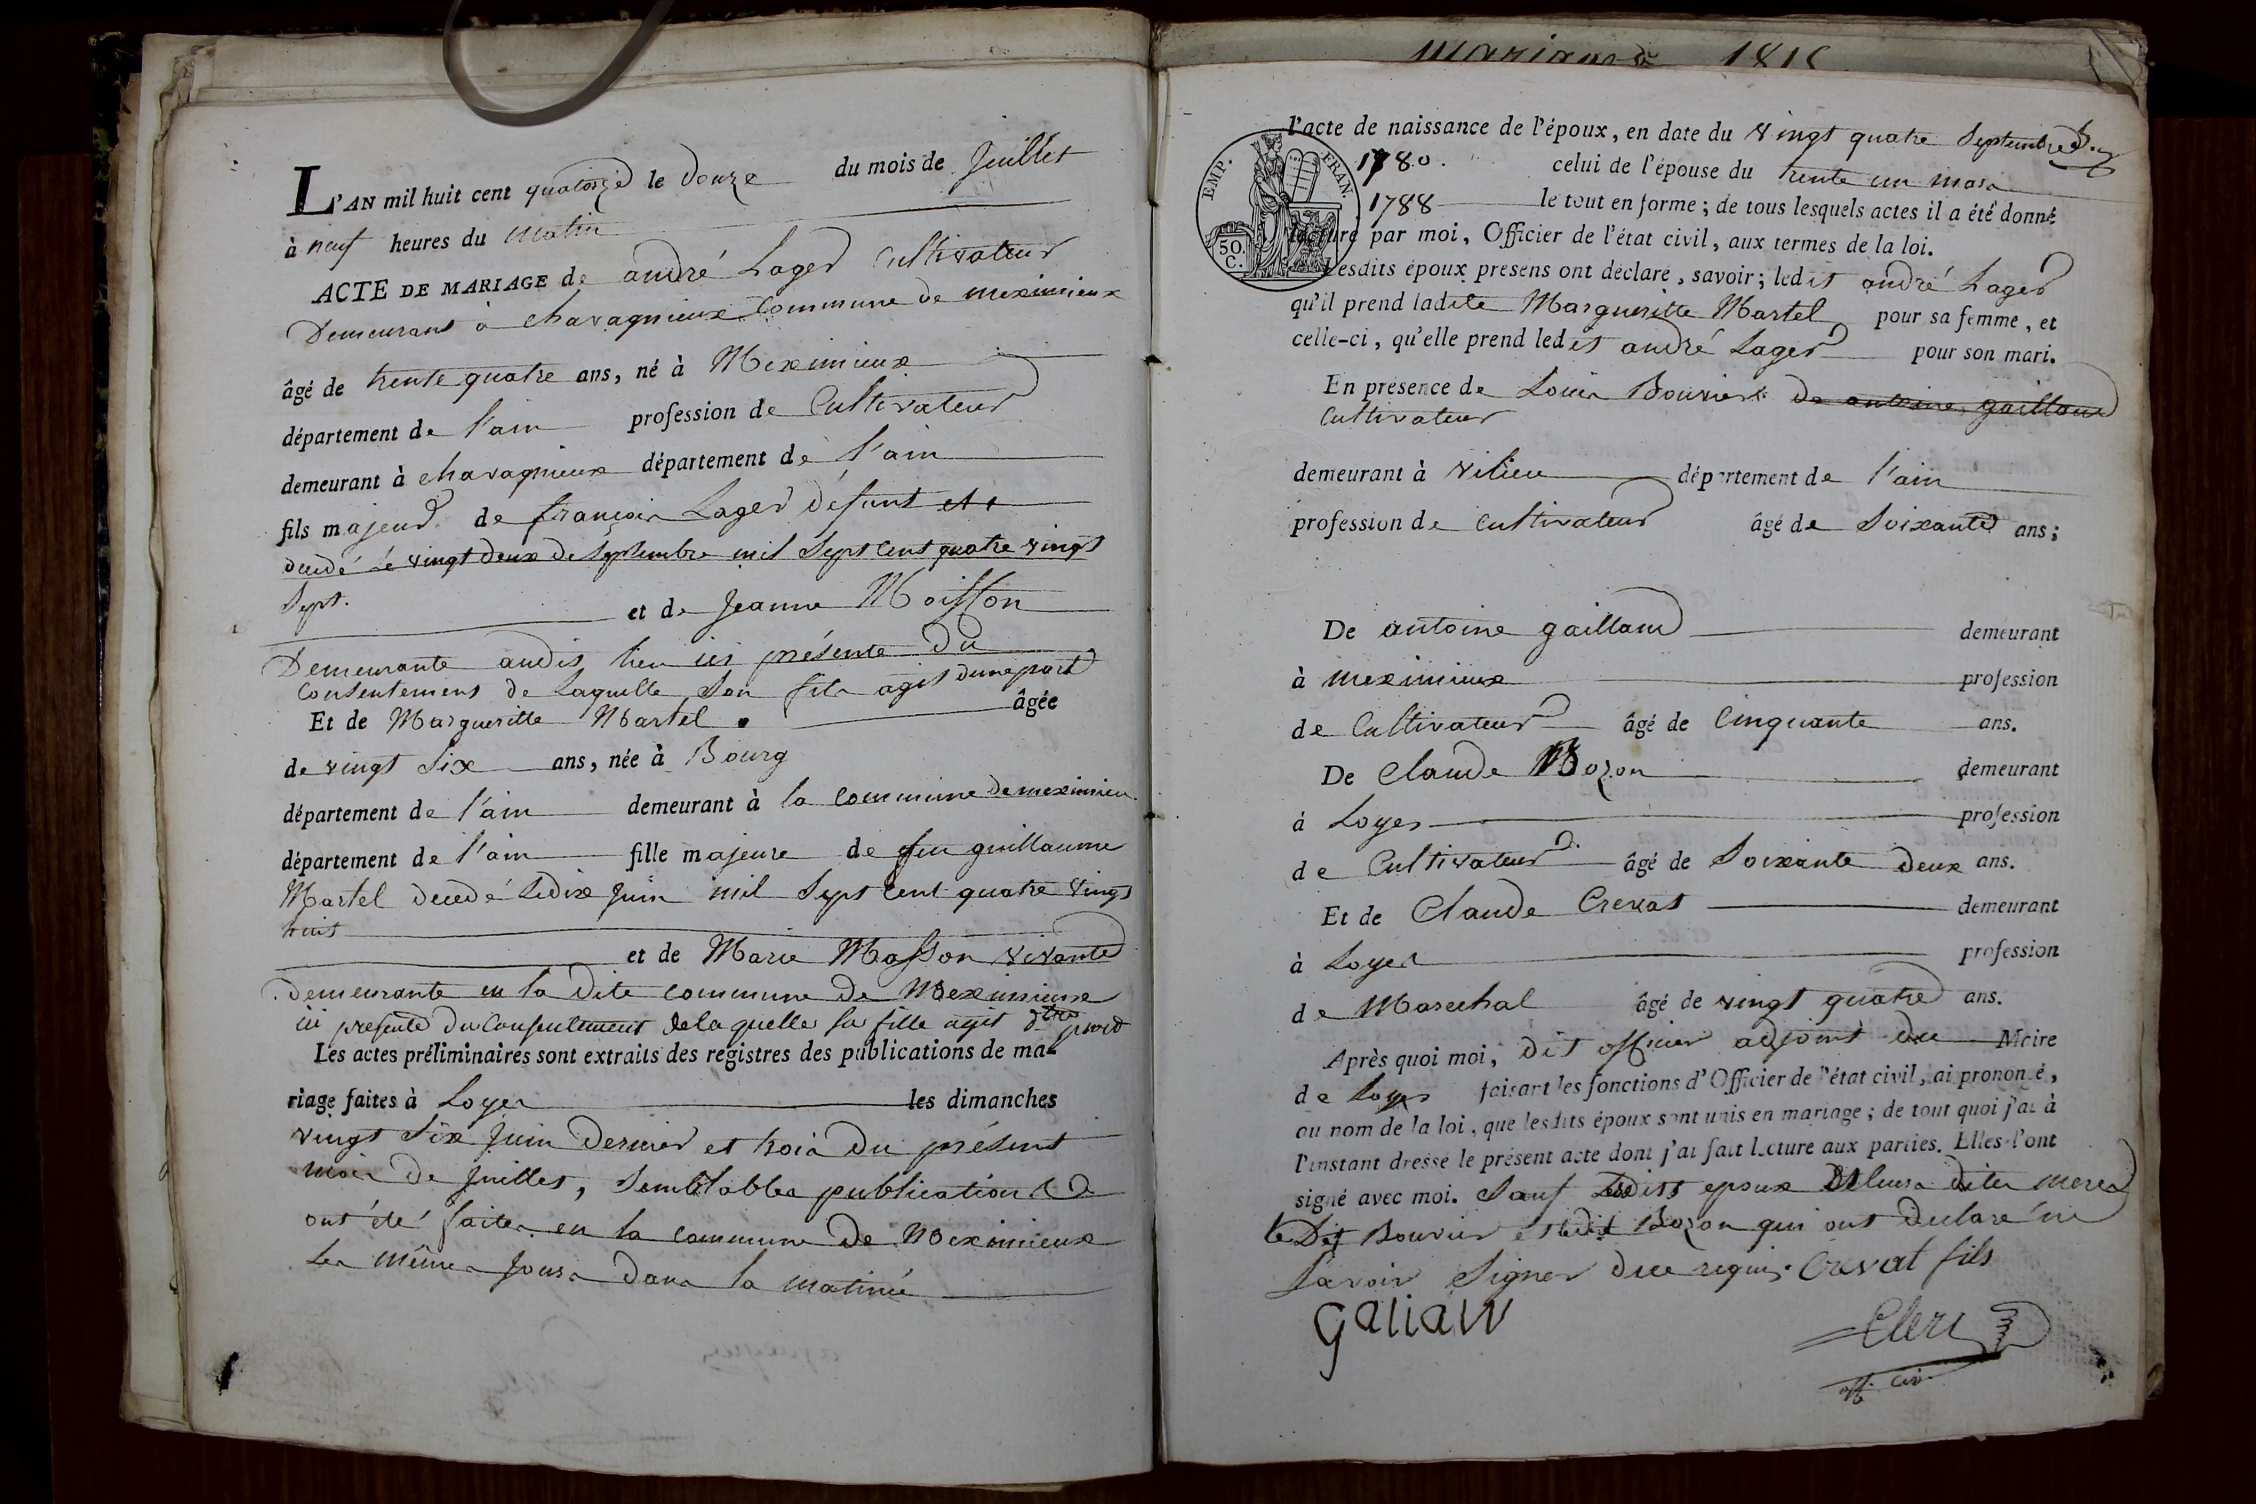 L'AN mil huit cent quatorze le douze du mois de Juillet
à neuf heures du matin
ACTE DE MARIAGE de andré Lager Cultivateur
Demeurant à chavagnieux Commune de meximieux
âgé de trente quatre ans, né à Meximieux
département de l'ain profession de Cultivateur
demeurant à chavagnieux département de l'ain
fils majeur de françois Lager défunt et
décédé le vingt deux de Septembre mil Sept Cent quatre vingt
Sept.
et de Jeanne Moisson
Demeurante audit lieu ici présente Du
Consentement de Laquelle Son fils agit d'une part
Et de Margueritte Martel âgée
de vingt Six ans, née à Bourg
département de l'ain demeurant à la commune de meximieu
département de l'ain fille majeure de feu guillaume
Martel decedé Le dix Juin mil Sept Cent quatre Vingt
huit
et de Marie Masson vivante
demeurante en la Dite commune de Meximieux
ici presente du Consentement de la quelle sa fille agit d'tre part
Les actes préliminaires sont extraits des registres des publications de ma-
riage faites à Loyes les dimanches
vingt Six Juin Dernier et trois Du présent
mois De Juillet, Semblables publications
ont été faites en la commune De Meximieux
les mêmes Jours Dans la matinée
mariages 181
l'acte de naissance de l'époux, en date du vingt quatre Septembre
1780. celui de l'épouse du trente un mars
1788 le tout en forme; de tous lesquels actes il a été donné
lecture par moi, Officier de l'état civil, aux termes de la loi.
EMP. FRAN.
50 C.
Lesdits époux présens ont déclaré, savoir; ledit andré Lager
qu'il prend ladite Margueritte Martel pour sa femme, et
celle-ci, qu'elle prend ledit andré Lager pour son mari.
En présence de Louis Bouvier de antoine gailland
Cultivateur
demeurant à vilieu département de l'ain
profession de Cultivateur âgé de Soixante ans;
De antoine gailland demeurant
à meximieux profession
de Cultivateur âgé de Cinquante ans.
De Claude Bozon demeurant
à Loyes profession
de Cultivateur âgé de Soixante deux ans.
Et de Claude Crevat demeurant
à Loyes profession
de Marechal âgé de vingt quatre ans.
Après quoi moi, dit officier adjoint du Maire
de Loyes faisant les fonctions d'Officier de l'état civil, ai prononcé,
au nom de la loi, que lesdits époux sont unis en mariage; de tout quoi j'ai à
l'instant dressé le présent acte dont j'ai fait lecture aux parties. Elles l'ont
signé avec moi. Sauf Lesdits epoux et leurs dites meres
le Dit Bouvier et ledit Bozon qui ont declaré ne
Savoir Signer due requis. Crevat fils
galian
Clerc
off. civ.